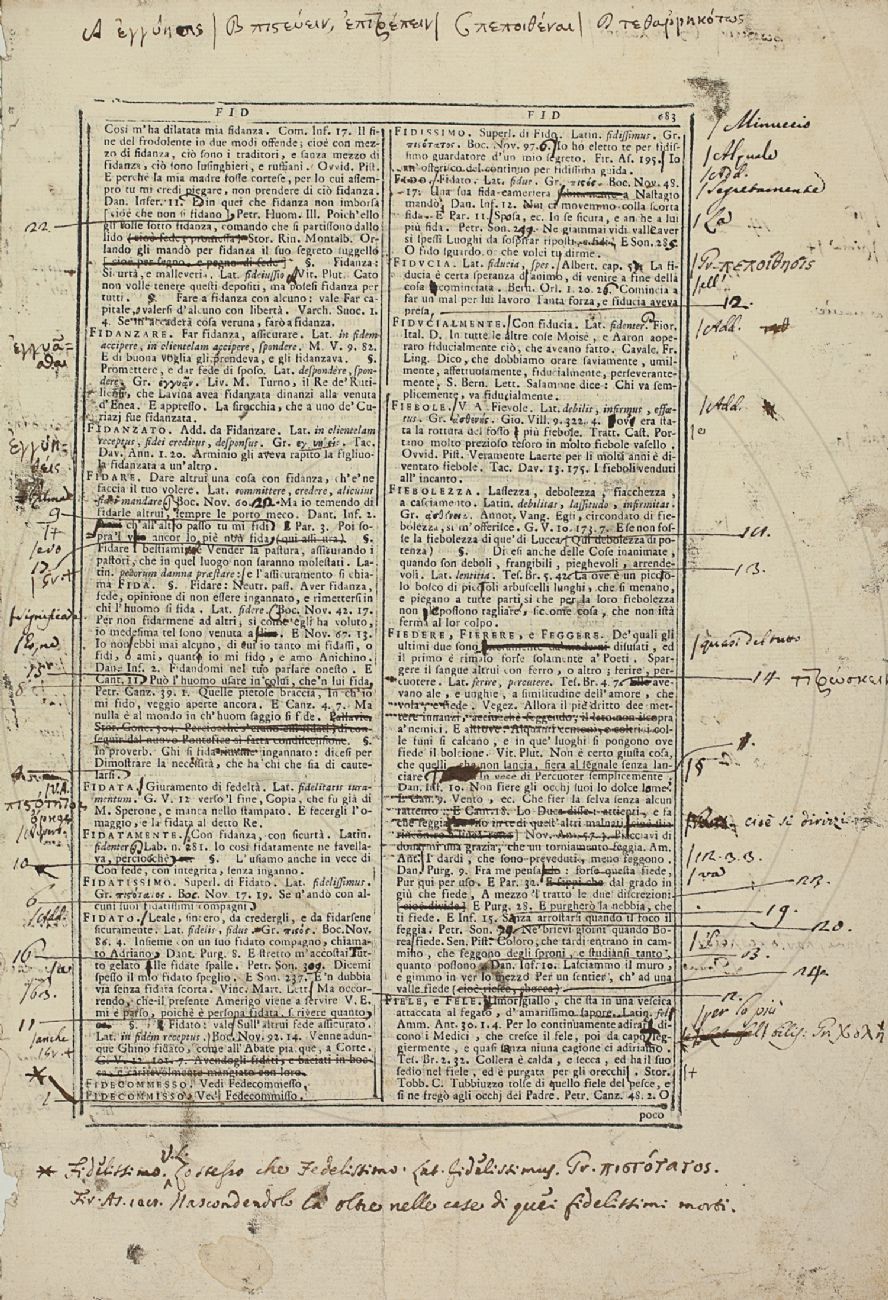 A ἐγγύησις | B πιστεύειν, ἐπιτρέπειν | C πεποιθέναι | D τεθαρρηκότως
FID
Così m'ha dilatata mia fidanza. Com. Inf. 17. Il fi-
ne del frodolente in due modi offende; cioè con mez-
zo di fidanza, ciò sono i traditori, e sanza mezzo di
fidanza, ciò sono lusinghieri, e ruffiani. Ovvid. Pist.
E perchè la mia madre fosse cortese, per lo cui assem-
pro tu mi credi piegare, non prendere di ciò fidanza.
Dan. Infer. 11. E in quei che fidanza non imborsa
(cioè che non si fidano) Petr. Huom. Ill. Poich'ello
gli volse sotto fidanza, comando che si partissono dallo
lido (cioè fede, promessa) Stor. Rin. Montalb. Or-
lando gli mandò per fidanza il suo segreto suggello
(cioè per segno, e pegno di fede) §. Fidanza:
Si urtà, e malleveria. Lat. fideiussio. Vit. Plut. Cato
non volle tenere questi depositi, ma posesi fidanza per
tutti. §. Fare a fidanza con alcuno: vale Far ca-
pitale, valersi d'alcuno con libertà. Varch. Suoc. 1.
4. Se m'accaderà cosa veruna, farò a fidanza.
FIDANZARE. Far fidanza, assicurare. Lat. in fidem
accipere, in clientelam accipere, spondere. M. V. 9. 82.
E di buona voglia gli prendeva, e gli fidanzava. §.
Promettere, e dar fede di sposo. Lat. despondere, spon-
dere. Gr. ἐγγυᾶν. Liv. M. Turno, il Re de' Ruti-
liesi, che Lavina avea fidanzata dinanzi alla venuta
d'Enea. E appresso. La sirocchia, che a uno de' Cu-
riazj fue fidanzata.
FIDANZATO. Add. da Fidanzare. Lat. in clientelam
receptus, fidei creditus, desponsus. Tac.
Dav. Ann. 1. 20. Arminio gli aveva rapito la figliuo-
la fidanzata a un'altro.
FIDARE. Dare altrui una cosa con fidanza, ch'e' ne
faccia il tuo volere. Lat. committere, credere, alicuius
fidei mandare. Boc. Nov. 60. Ma io temendo di
fidarle altrui, sempre le porto meco. Dant. Inf. 2.
ch'all'alto passo tu mi fidi. E Par. 3. Poi so-
pra'l vero ancor lo piè non fida (qui assicura).
Fidare bestiami: Vender la pastura, assicurando i
pastori, che in quel luogo non saranno molestati. La-
tin. pecorum damna præstare: e l'assicuramento si chia-
ma FIDA. §. Fidare: Neutr. pass. Aver fidanza,
fede, opinione di non essere ingannato, e rimettersi in
chi l'huomo si fida. Lat. fidere. Boc. Nov. 42. 17.
Per non fidarmene ad altri, si come egli ha voluto,
io medesima tel sono venuta a E Nov. 67. 13.
Io non ebbi mai alcuno, di cui io tanto mi fidassi, o
fidi, o ami, quanto io mi fido, e amo Anichino.
Dant. Inf. 2. Fidandomi nel tuo parlare onesto. E
Cant. 11. Può l'huomo usare in colui, che'n lui fida,
Petr. Canz. 39. 1. Quelle pietose braccia, In ch'io
mi fido, veggio aperte ancora. E Canz. 4. 7. Ma
nulla è al mondo in ch'huom saggio si fide. Pallavic.
Stor. Conc. 304. Perciocchè s'erano essi fidati di con-
seguir dal nuovo Pontefice sì fatta condiscensione. §.
In proverb. Ghi si fida ingannato: dicesi per
Dimostrare la necessità, che ha chi che sia di caute-
larsi.
FIDATA. Giuramento di fedeltà. Lat. fidelitatis iura-
mentum. G. V. 12 verso'l fine, Copia, che fu già di
M. Sperone, e manca nello stampato. E fecergli l'o-
maggio, e la fidata al detto Re,
FIDATAMENTE. Con fidanza, con sicurtà. Latin.
fidenter. Lab. n. 281. Io così fidatamente ne favella-
va, perciocchè §. L'usiamo anche in vece di
Con fede, con integrità, senza inganno.
FIDATISSIMO. Superl. di Fidato. Lat. fidelissimus.
Gr. πιστότατος. Boc. Nov. 17. 19. Se n'andò con al-
cuni suoi fidatissimi compagni.
FIDATO. Leale, sincero, da credergli, e da fidarsene
sicuramente. Lat. fidelis, fidus. Gr. πιστός. Boc. Nov.
86. 4. Insieme con un suo fidato compagno, chiama-
to Adriano. Dant. Purg. 8. E stretto m'accostai Tut-
to gelato alle fidate spalle. Petr. Son. 309. Dicemi
spesso il mio fidato speglio. E Son. 237. Io'n dubbia
via senza fidata scorta. Vinc. Mart. Lett. Ma occor-
rendo, che il presente Amerigo viene a servire V. E.
mi è parso, poichè è persona fidata, scrivere quanto
§. Fidato: vale Sull'altrui fede assicurato.
Lat. in fidem receptus. Boc. Nov. 92. 14. Venne adun-
que Ghino fidato, come all'Abate piacque, a Corte.
G. V. 12. 101. 7. Avendogli fidati, e baciati in boc-
ca, e caritevolmente mangiato con loro.
FIDECOMMESSO. Vedi Fedecommesso,
FIDECOMMISSO. Vedi Fedecommisso.
FID 683
FIDISSIMO. Superl. di Fido. Latin. fidissimus. Gr.
πιστότατος. Boc. Nov. 97. 6. Io ho eletto te per fidis-
simo guardatore d'un mio segreto. Fir. As. 195. Io
un'osserico del continuo per fidissima guida.
FIDO. Fidato. Lat. fidus. Gr. πιστός. Boc. Nov. 48.
17. Una sua fida cameriera a Nastagio
mandò. Dan. Inf. 12. Noi ci movemmo colla scorta
fida. E Par. 11. Sposa, ec. In se sicura, e anche a lui
più fida. Petr. Son. Ne giammai vidi valle aver
sì spessi Luoghi da sospirar riposti, e fidi. E Son. 286.
O fido sguardo, or che volei tu dirme.
FIDUCIA. Lat. fiducia, spes. Albert. cap. La fi-
ducia è certa speranza d'animo, di venire a fine della
cosa cominciata. Bern. Orl. 1. 20. 26. Comincia a
far un mal per lui lavoro Tanta forza, e fiducia aveva
presa,
FIDUCIALMENTE. Con fiducia. Lat. fidenter. Fior.
Ital. D. In tutte le altre cose Moisè, e Aaron aope-
raro fiducialmente ciò, che aveano fatto. Cavalc. Fr.
Ling. Dico, che dobbiamo orare saviamente, umil-
mente, affettuosamente, fiducialmente, perseverante-
mente. S. Bern. Lett. Salamone dice: Chi va sem-
plicemente, va fiducialmente.
FIEBOLE. V. A. Fievole. Lat. debilis, infirmus, effœ-
tus. Gr. ἀσθενής. Gio. Vill. 9. 322. 4. Dove era sta-
ta la rottura del fosso più fiebole. Tratt. Cast. Por-
tano molto prezioso tesoro in molto fiebole vasello.
Ovvid. Pist. Veramente Laerte per li molti anni è di-
ventato fiebole. Tac. Dav. 13. 175. I fieboli venduti
all'incanto.
FIEBOLEZZA. Lassezza, debolezza, fiacchezza,
a casciamento. Latin. debilitas, lassitudo, infirmitas.
Gr. ἀσθένεια. Annot. Vang. Egli, circondato di fie-
bolezza, si un'offerisce. G. V. 10. 173. 7. E se non fos-
se la fiebolezza di que' di Lucca (Qui debolezza di po-
tenza) §. Di esi anche delle Cose inanimate,
quando son deboli, frangibili, pieghevoli, arrende-
voli. Lat. lentitia. Tes. Br. 5. 42. La ove è un picco-
lo bosco di piccoli arbuscelli lunghi, che si menano,
e piegano a tutte parti si che per la loro fiebolezza
non si possono tagliare, siccome cosa, che non istà
ferma al lor colpo.
FIEDERE, FIERERE, e FEGGERE. De' quali gli
ultimi due sono disusati, ed
il primo è rimaso forse solamente a' Poeti. Spar-
gere il sangue altrui con ferro, o altro; ferire, per-
cuotere. Lat. ferire, percutere. Tes. Br. 4. 7. Elle ave-
vano ale, e unghie, a similitudine dell'amore, che
vola, e fiede. Vegez. Allora il piè dritto dee met-
tere innanzi, acciocchè feggendo, il lato non iscopra
a' nemici. E
le funi si calcano, e in que' luoghi si pongono ove
fiede il bolcione. Vit. Plut. Non è certo giusta cosa,
che quelli, che non lancia, fiera al segnale senza lan-
ciare In vece di Percuoter semplicemente,
Dan. Inf. 10. Non fiere gli occhj suoi lo dolce lome.
E Can. 9. Vento, ec. Che fier la selva senza alcun
rattento. E Cant. 18.
Nov. Ant. 57. 3. Piacciavi di
donarmi una grazia, che un torniamento feggia. Am.
Ant. I dardi, che sono preveduti, meno feggono.
Dan. Purg. 9. Fra me pensando: forse questa fiede,
Pur qui per uso. E Par. 32. E sappi che dal grado in
giù che fiede, A mezzo 'l tratto le due discrezioni
(cioè divide) E Purg. 28. E purgherò la nebbia, che
ti fiede. E Inf. 15. Sanza arrostarsi quando il foco il
feggia. Petr. Son. Ne' brievi giorni quando Bo-
rea 'l fiede. Sen. Pist. Coloro, che tardi entrano in cam-
mino, che feggono degli sproni, e studiansi tanto,
quanto possono. Dan. Inf. 10. Lasciammo il muro,
e gimmo in ver lo mezzo Per un sentier, ch'ad una
valle fiede (cioè riesce, sbocca)
FIELE, e FELE. Umor giallo, che sta in una vescica
attaccata al fegato, d'amarissimo sapore. Latin. fel.
Amm. Ant. 30. 1. 4. Per lo continuamente adirarsi, di-
cono i Medici, che cresce il fele, poi da capo leg-
giermente, e quasi sanza niuna cagione ci adiriamo.
Tes. Br. 2. 32. Collera è calda, e secca, ed ha il suo
sedio nel fiele, ed è purgata per gli orecchi. Stor.
Tobb. C. Tubbiuzzo tolse di quello fiele del pesce, e
sì ne fregò agli occhj del Padre. Petr. Canz. 48. 2. O
poco
22
9
17
10
6
16
11
/anche
/Minuccio
/Alquale
/Add.
/segretamente
/La
/Gr. πεποίθησις
12.
/Add.
/Add.
13.
/quasi del tutto
14
15
cioè si dirizzi
/12. 3. 3.
/va
22.
19.
20.
13.
24.
12.
/per lo più
* Fidelissimo. V.L. Lo stesso che Fedelissimo. Lat. fidelissimus. Gr. πιστότατος.
Fir. As. Nascondendolo là oltre nelle case di quei fidelissimi morti.